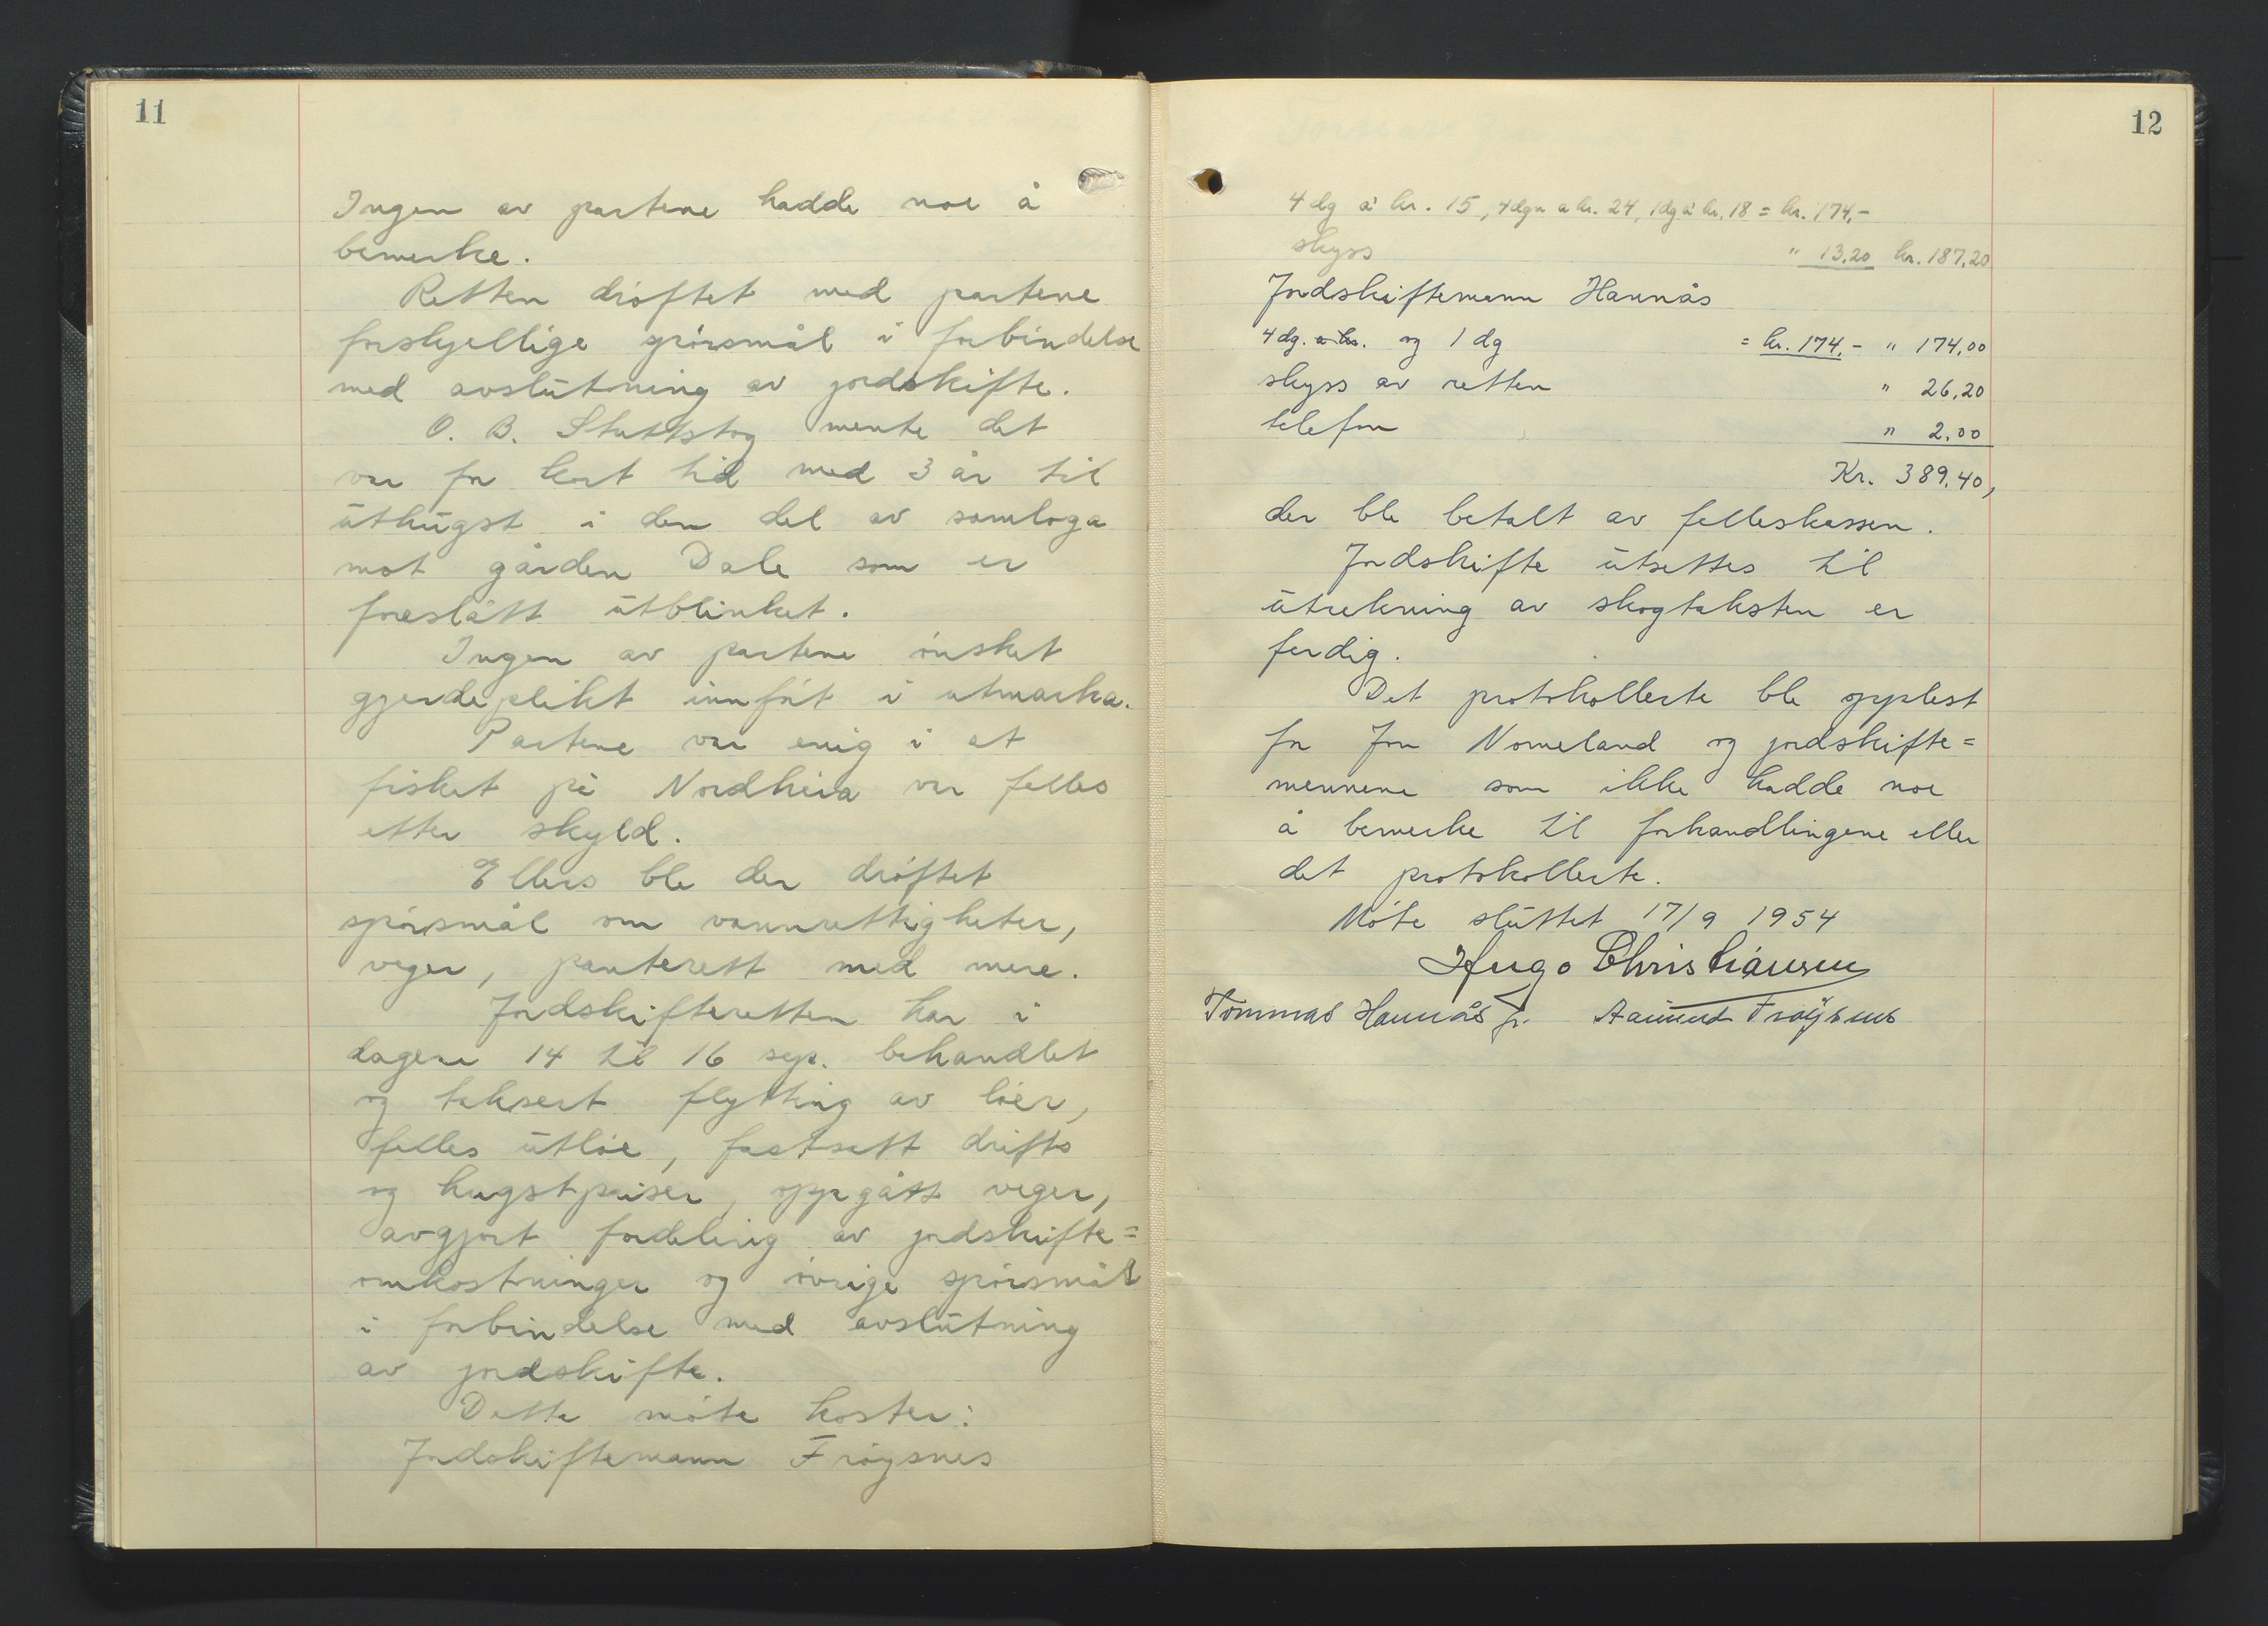 11
Ingen av partene hadde noe å
bemerke.
Retten drøftet med partene
forskjellige spørsmål i forbindelse
med avslutning av jordskifte.
O. B. Stuttstog mente det
var for kort tid med 3 år til
uthugst i den del av samloga
mot gården Dale som er
foreslått utblinket.
Ingen av partene ønsket
gjerdeplikt innført i utmarka.
Partene var enig i at
fisket på Nordheia var felles
etter skyld.
Ellers ble der drøftet
spørsmål om vannrettigheter,
veger, panterett med mere.
Jordskifteretten har i
dagene 14 til 16 sep. behandlet
og taksert flytting av løer,
felles utløe, fastsatt drifts
og hugstpriser, oppgått veger,
avgjort fordeling av jordskifte=
omkostninger og øvrige spørsmål
i forbindelse med avslutning
av jordskifte.
Dette møte koster:
Jordskiftemann Frøysnes
12
4 dg à kr. 15, 4 dgn a kr. 24, 1 dg à kr. 18 = kr. 174,-
skyss " 13,20 kr. 187,20
Jordskiftemann Hannås
4 dg. a kr. og 1 dg = kr. 174,- " 174,00
skyss av retten " 26,20
telefon " 2,00
Kr. 389,40,
der ble betalt av felleskassen.
Jordskifte utsettes til
utrekning av skogtaksten er
ferdig.
Det protokollerte ble opplest
for Jon Nomeland og jordskifte=
mennene som ikke hadde noe
å bemerke til forhandlingene eller
det protokollerte.
Møte sluttet 17/9 1954
Hugo Christiansen
Tommas Hannås jr. Aamund Frøysnes